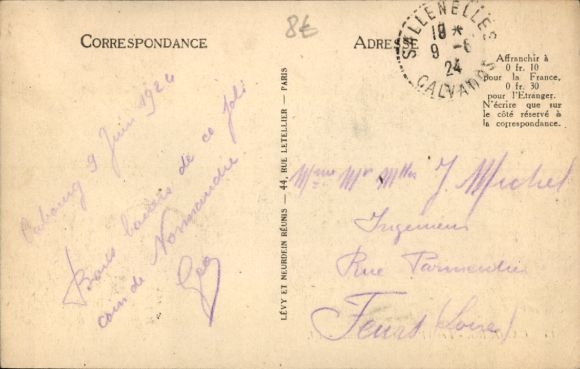 8€
CORRESPONDANCE
ADRESSE
SALLENELLES
18 *
9 - 6
24
CALVADOS
Affranchir à
0 fr. 10
pour la France,
0 fr. 30
pour l'Etranger.
N'écrire que sur
le côté réservé à
la correspondance.
LÉVY ET NEURDEIN RÉUNIS — 44, RUE LETELLIER — PARIS
Cabourg 9 Juin 1924
Bons baisers de ce joli
coin de Normandie
Geo
Mme Mr Mlles J. Michel
Ingenieur
Rue Parmentier
Feurs (Loire)